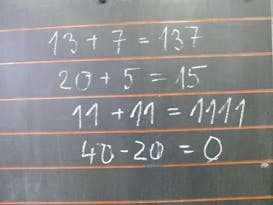 13 + 7 = 137
20 + 5 = 15
11 + 11 = 1111
40 - 20 = 0